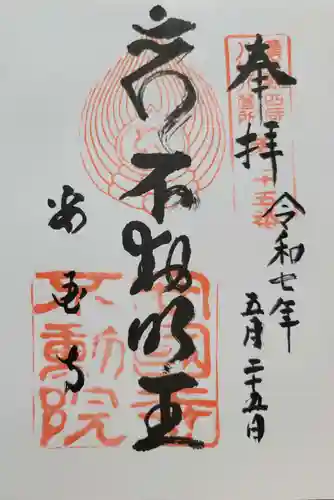 奉拝
令和七年
五月二十五日
不動明王
安国寺
安國寺
不動院